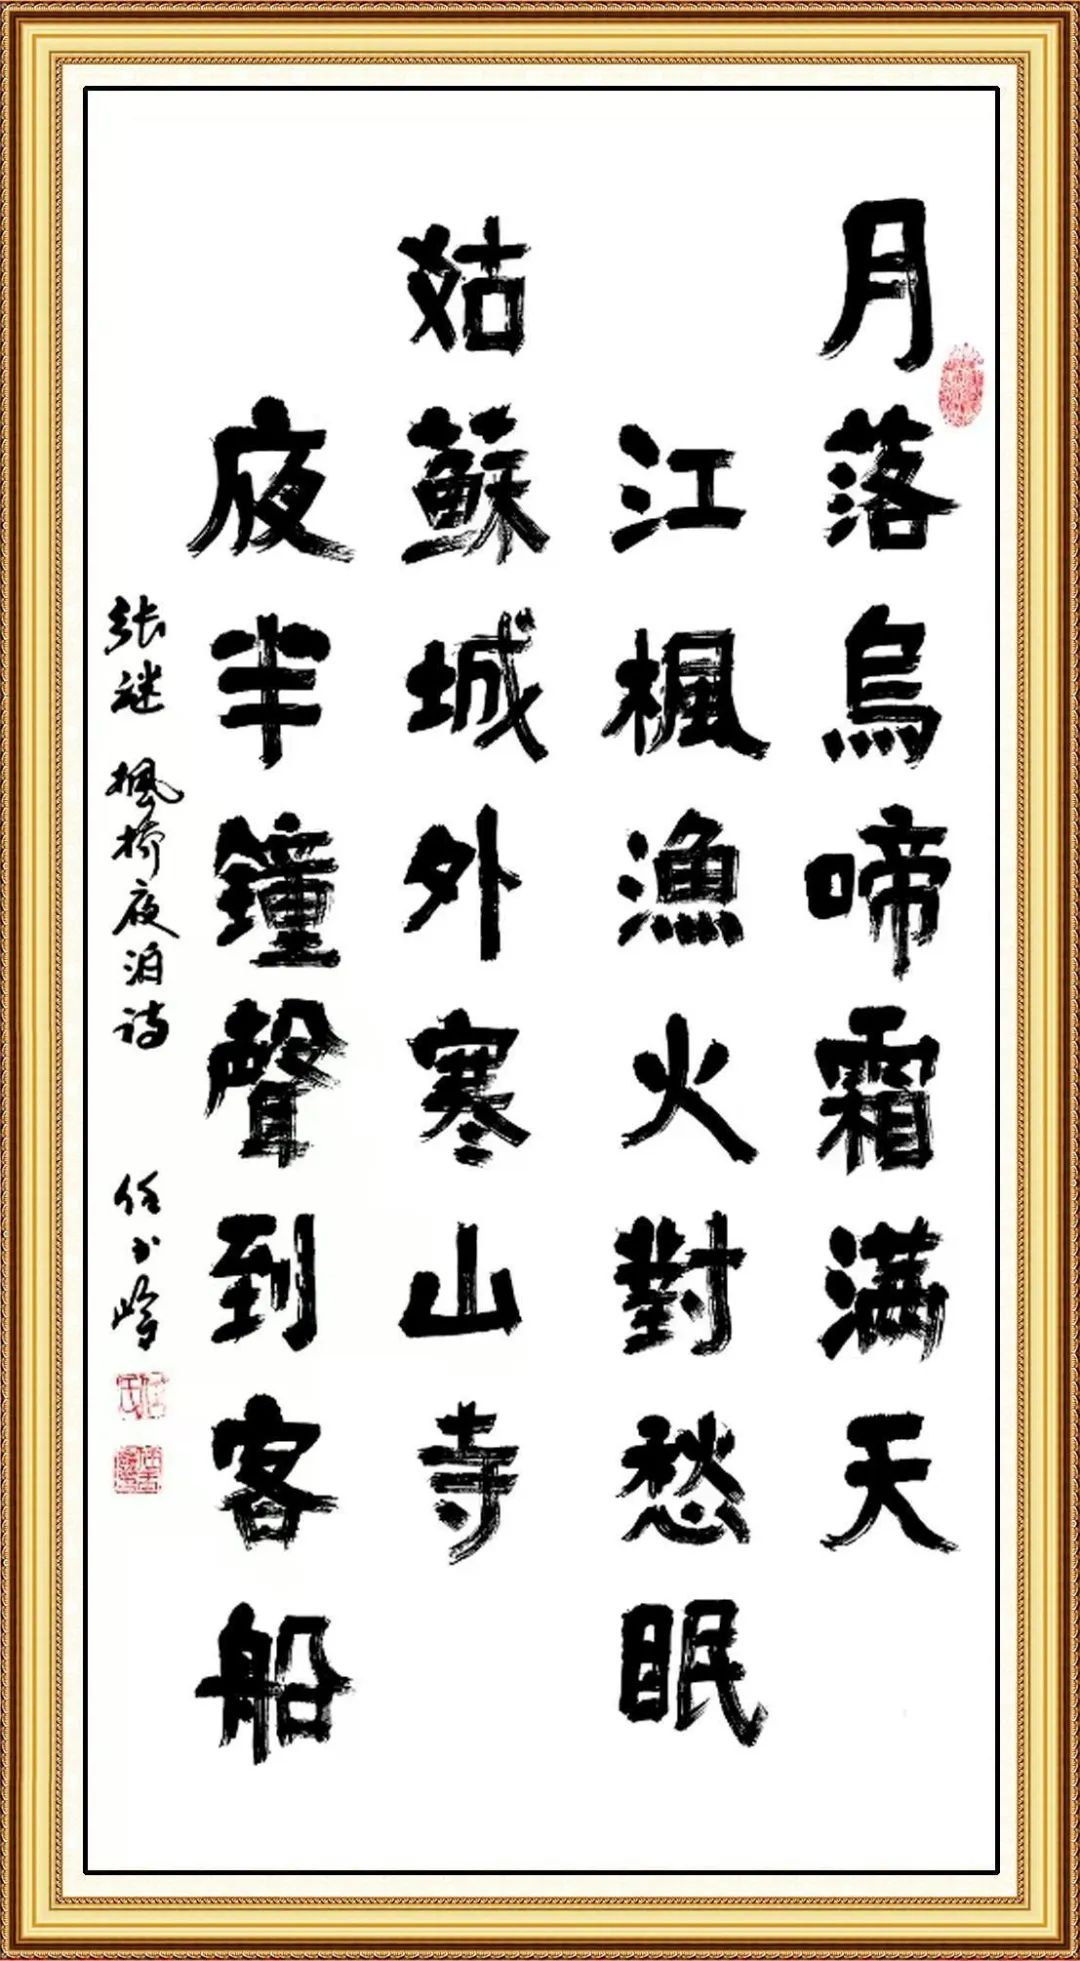 月落烏啼霜满天
江楓漁火對愁眠
姑蘇城外寒山寺
夜半鐘聲到客船
张继 枫桥夜泊诗 任